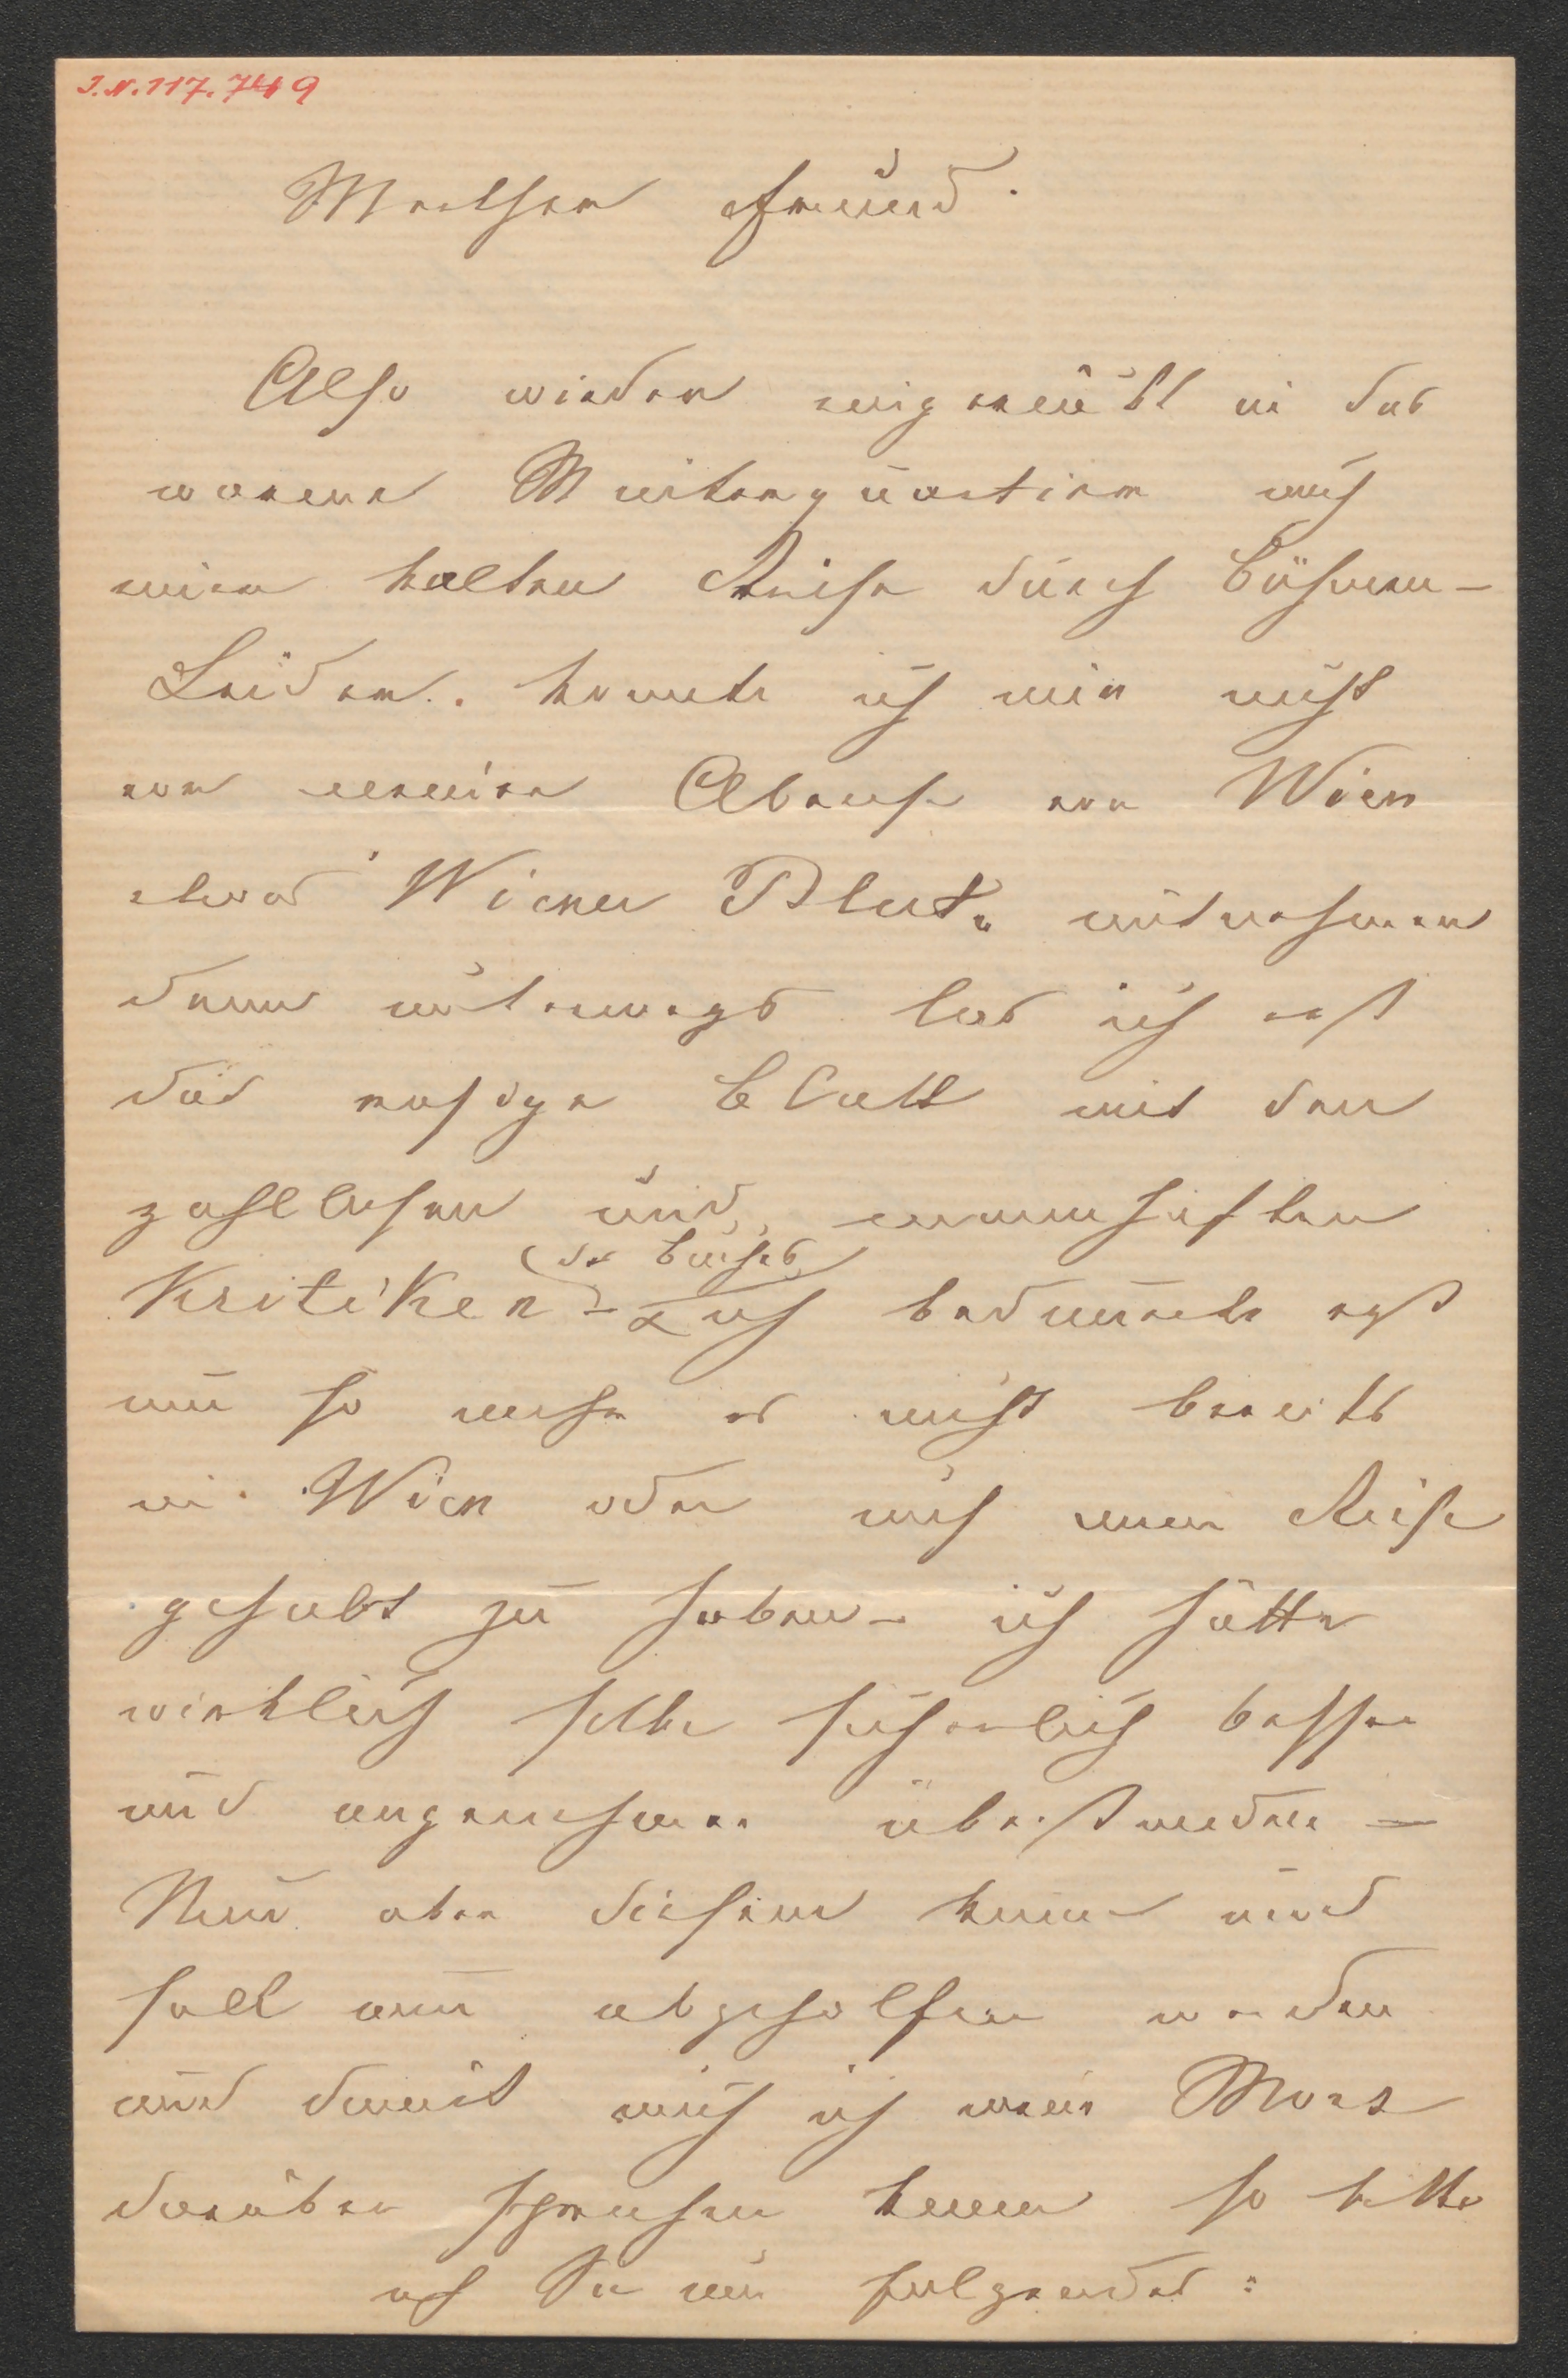 I.N. 117.749
Werther Freund.
Also wieder eingerückt in das
warme Winterquartier nach
einer kalten Reise durch Böhmen –
Leider. konnte ich mir nicht
vor meiner Abreise von Wien
etwas Wiener Blut" mitnehmen
denn unterwegs las ich erst
das rosige Blatt mit den
zahllosen und
Kritiken – (des Buches) Ich bedauerte erst
um so mehr es nicht bereits
in Wien oder auf meiner Reise
gehabt zu haben – ich hätte
wirklich selbe sicherlich besser
und angenehmer überstanden –
Nun aber diesem kann und
soll nun abgeholfen werden
und damit auch ich mein
darüber sprechen kann so bitte
ich Sie um folgendes: